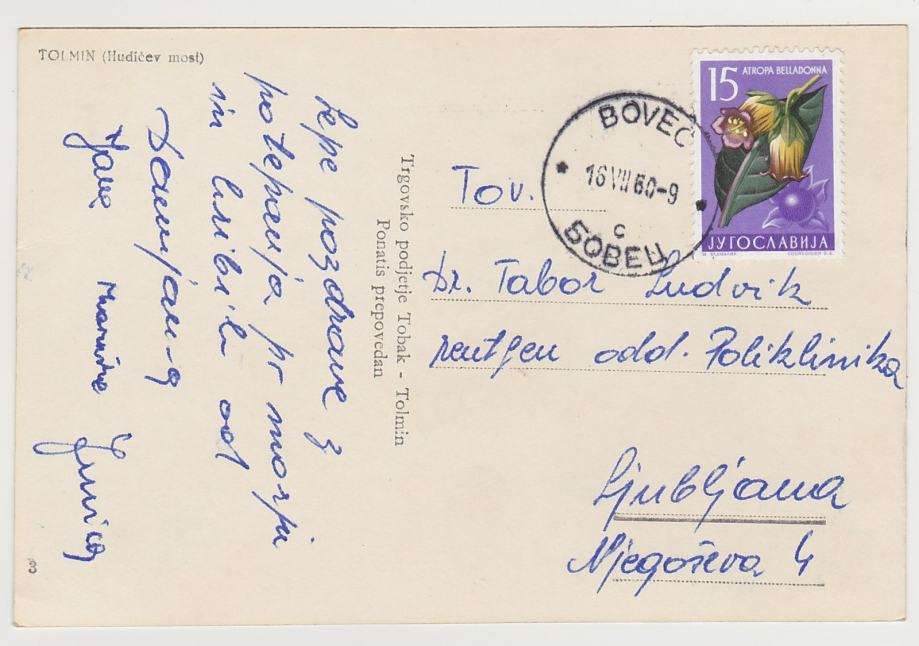 TOLMIN (Hudičev most)
Lepe pozdrave z
potepanja pr morju
in hribih od
Damjana
Jana
Trgovsko podjetje Tobak - Tolmin
Ponatis prepovedan
15 ATROPA BELLADONNA
ЈУГОСЛАВИЈА
BOVEC
16 VII 60-9
c
БОВЕЦ
Tov.
Dr. Tabor Ludvik
rentgen odd. Poliklinika
Ljubljana
Njegoševa 4
3